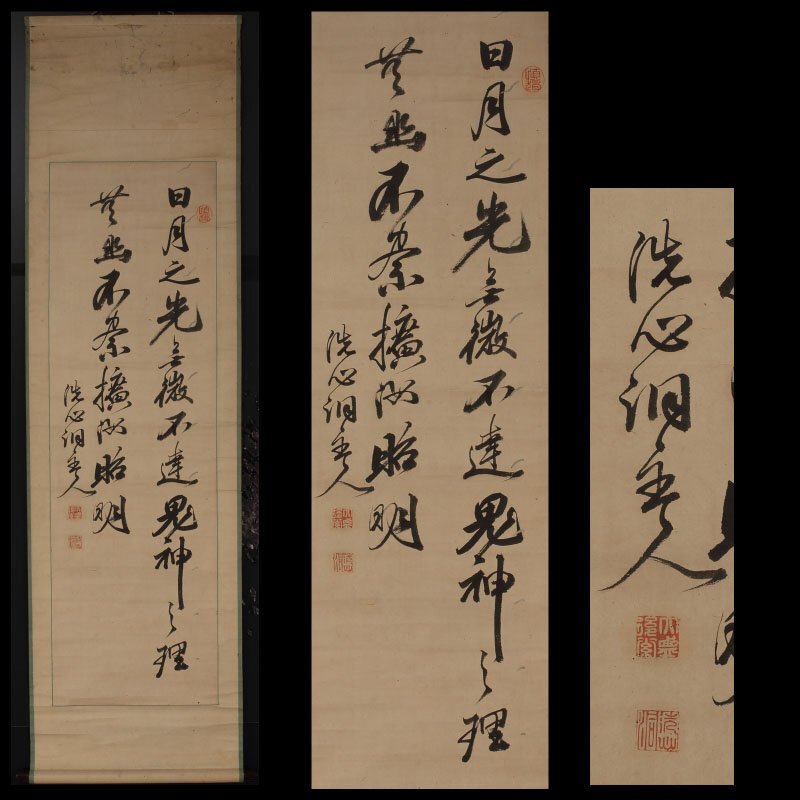 日月之光無微不達鬼神之理
莫幽不察擴汝昭明
洗心洞主人
日月之光無微不達鬼神之理
莫幽不察擴汝昭明
洗心洞主人
洗心洞主人